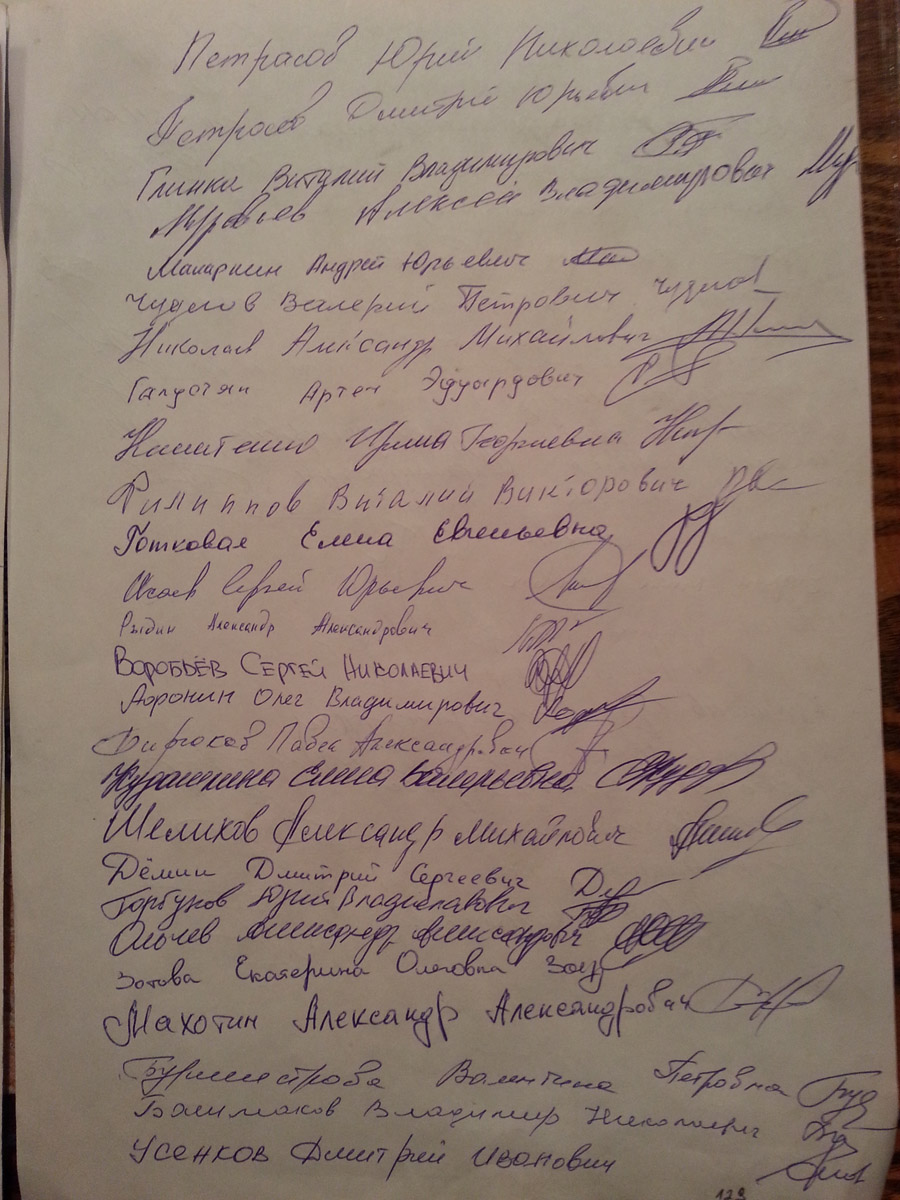 Петрасов Юрий Николаевич
Петрасов Дмитрий Юрьевич
Глинка Виталий Владимирович
Муравьев Алексей Владимирович
Макаркин Андрей Юрьевич
Чудов Валерий Петрович
Николаев Александр Михайлович
Галустян Артем Эдуардович
Ирина Георгиевна
Филиппов Виталий Викторович
Готковая Елена Евгеньевна
Сергей Юрьевич
Рыдин Александр Александрович
Воробьёв Сергей Николаевич
Аоронин Олег Владимирович
Павел Александрович
Елена Валерьевна
Шелихов Александр Михайлович
Дёмин Дмитрий Сергеевич
Горбунов Юрий Владиславович
Александр Александрович
Зотова Екатерина Олеговна
Махотин Александр Александрович
Бурмистрова Валентина Петровна
Башмаков Владимир Николаевич
Усенков Дмитрий Иванович